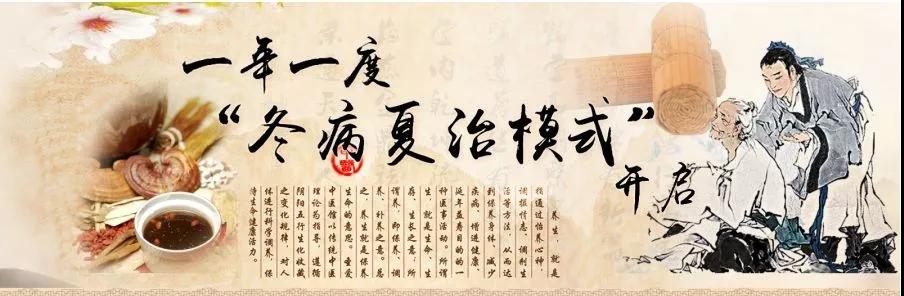 一年一度
“冬病夏治模式”
开启
养生,就是
指通过怡养心神,
调摄情志、调剂生
活等方法,从而达
到保养身体、减少
疾病、增进健康、
延年益寿目的的一
种医事活动。所谓
生,就是生命、生
存、生长之意;所
谓养,即保养、调
养、补养之意。总
之,养生就是保养
生命的意思。圣爱
中医馆以传统中医
理论为指导,遵循
阴阳五行生化收藏
之变化规律,对人
体进行科学调养,保
持生命健康活力。